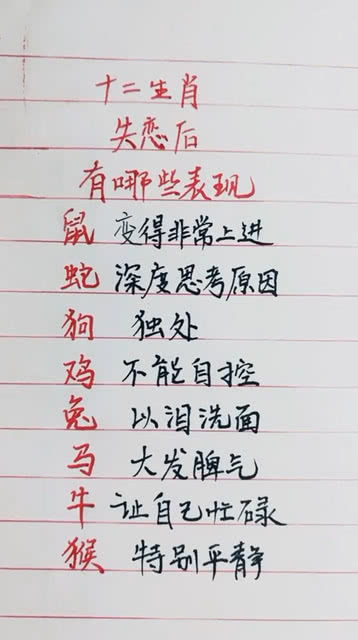 十二生肖
失恋后
有哪些表现
鼠 变得非常上进
蛇 深度思考原因
狗 独处
鸡 不能自控
兔 以泪洗面
马 大发脾气
牛 让自己忙碌
猴 特别平静